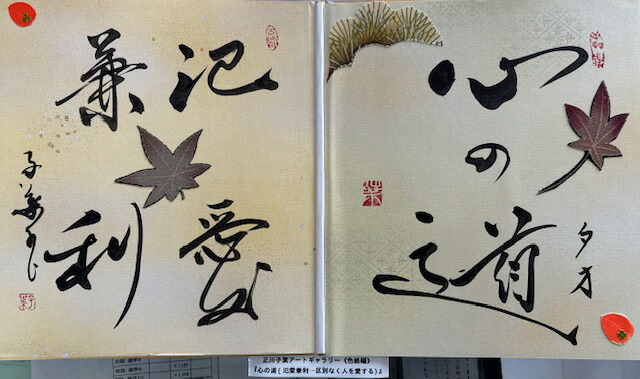 心の道
タオ
氾愛
兼利
正川子葉アートギャラリー《色紙編》
『心の道(氾愛兼利…区別なく人を愛する)』